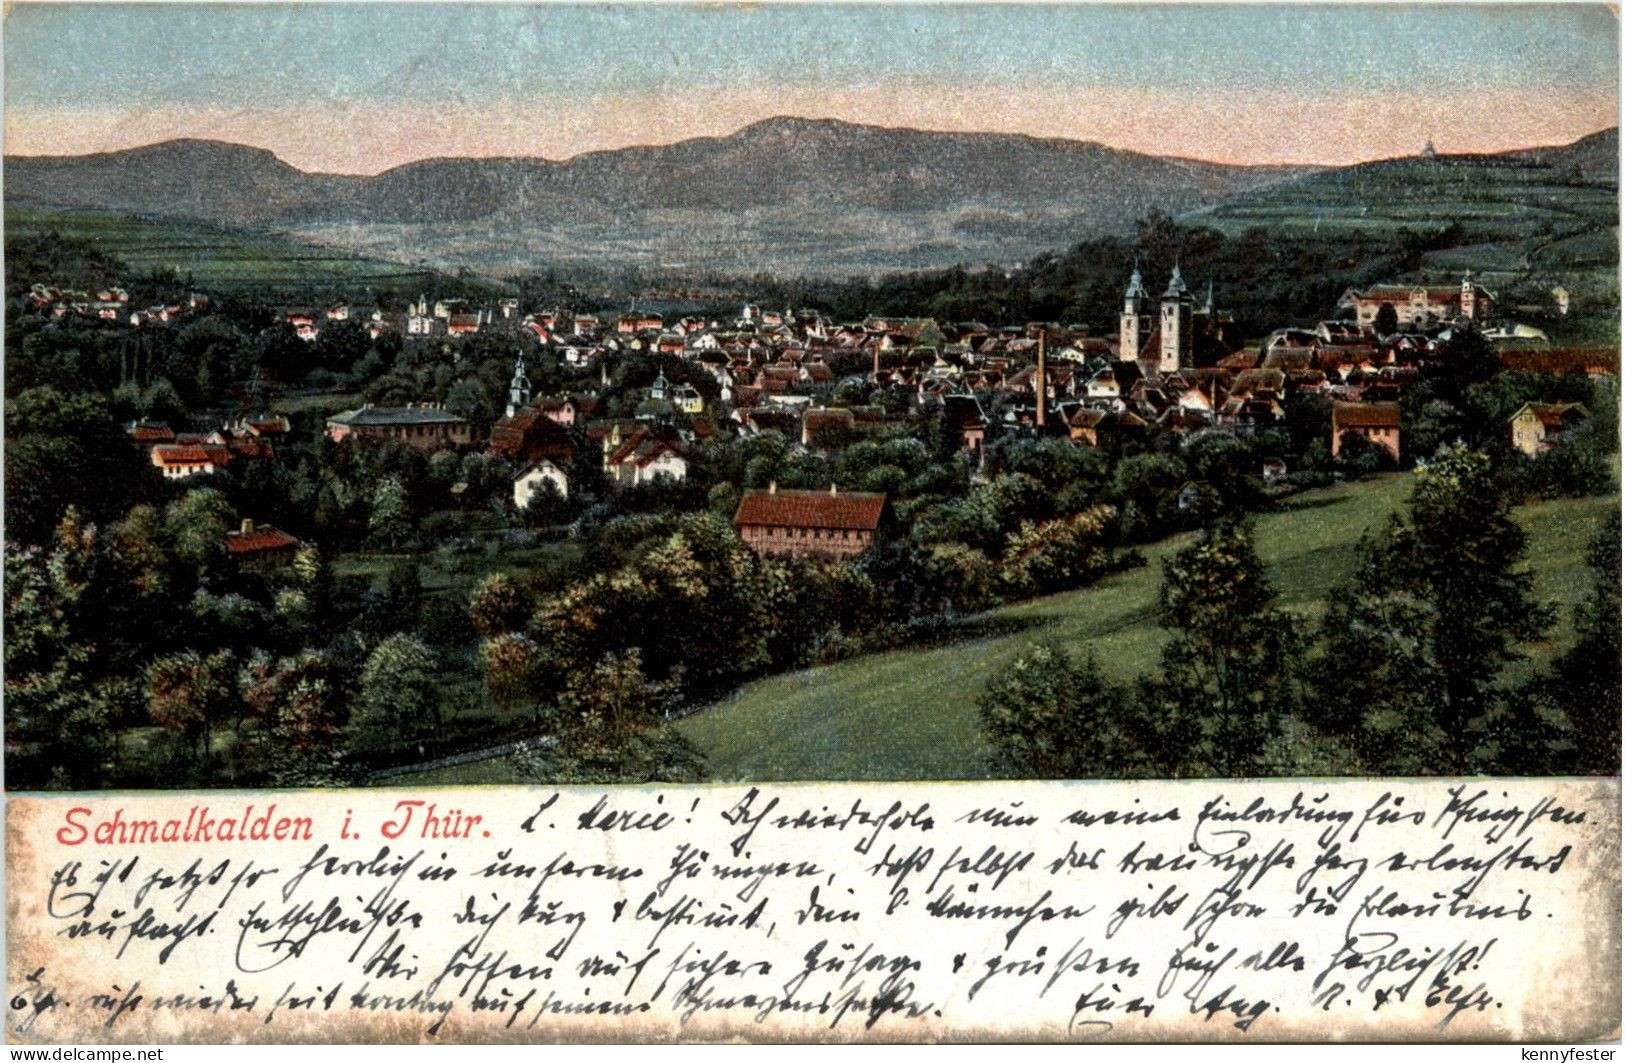 Schmalkalden i. Thür. L. Marie! Ich wiederhole nun meine Einladung für Pfingsten.
Es ist jetzt so herrlich in unserem Thüringen, daß selbst das traurigste Herz erleichtert
auflacht. Entschließe dich kurz & bestimt, dein l. Männchen gibt schon die Erlaubnis.
Wir hoffen auf sichere Zusage & grüßen Euch alle herzlichst!
ruht wieder seit Montag auf seinem Euer Aug. K. & Elfr.
kennyfester